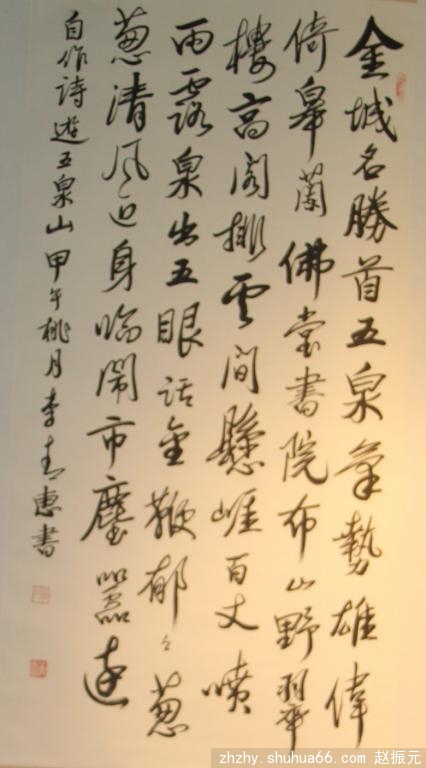 金城名勝首五泉氣勢雄偉
倚皋蘭佛堂書院布山野翠
樓高閣排雲間懸崖百丈噴
雨露泉出五眼話金鞭郁々葱
葱清風迎身臨鬧市塵囂遠
自作詩遊五泉山甲午桃月李惠書
zhzhy.shuhua66.com 赵振元